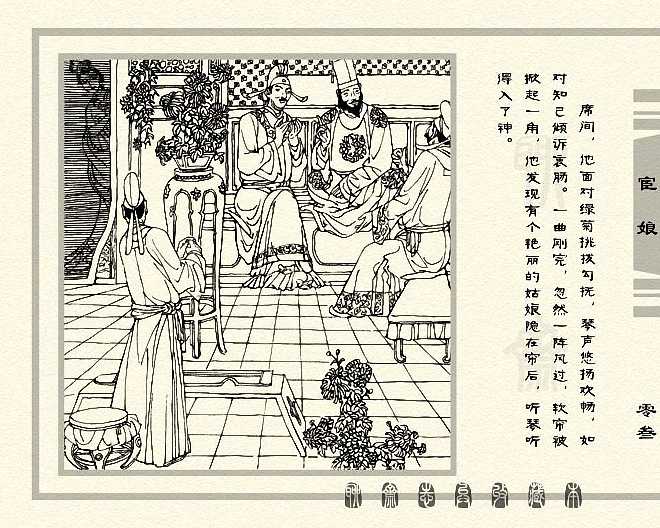 席间，他面对绿菊挑拨勾抚，琴声悠扬欢畅，如
对知己倾诉衷肠。一曲刚完，忽然一阵风过，软帘被
掀起一角，他发现有个艳丽的姑娘隐在帘后，听琴听
得入了神。
宦娘
零叁